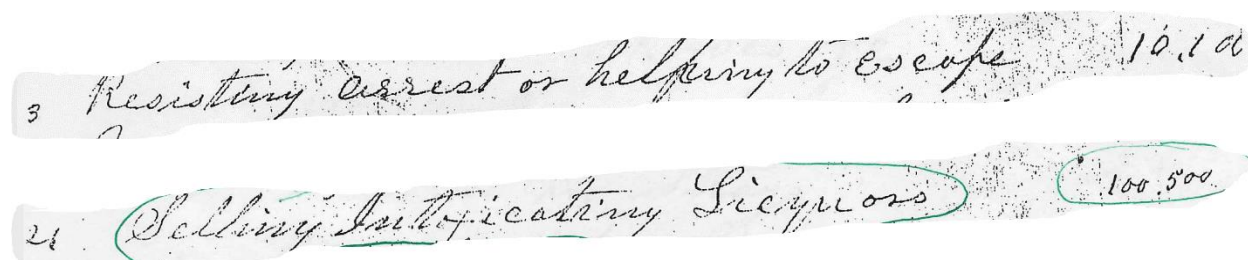 3 Resisting arrest or helping to escape 10.10
21 Selling Intoxicating Licquors 100.500